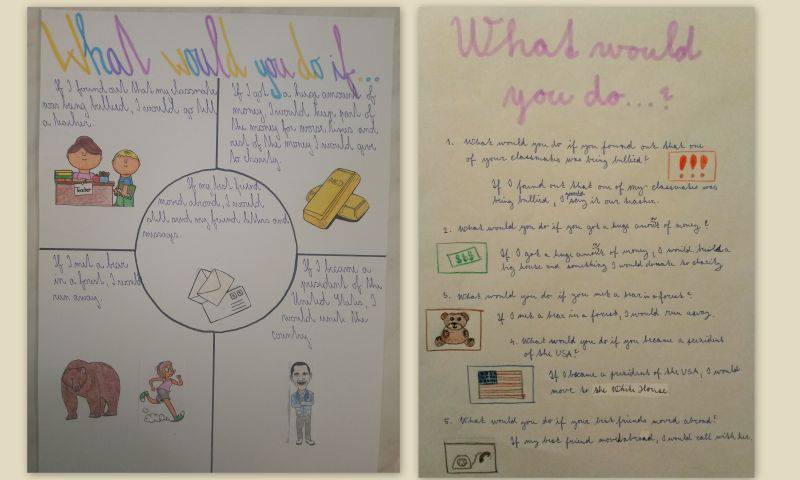 What would you do if...
If I found out that my classmate
was being bullied, I would go tell
a teacher.
Teacher
If I got a huge amount of
money, I would keep part of
the money for worse times and
rest of the money I would give
to charity.
If my best friend
moved abroad, I would
still send my friend letters and
messages.
If I met a bear
in a forest, I would
run away.
If I became a
president of the
United States, I
would unite the
country.
What would
you do...?
1. What would you do if you found out that one
of your classmates was being bullied?
!!!
If I found out that one of my classmates was
being bullied, I would say it our teacher.
2. What would you do if you got a huge amount of money?
$$$
If I got a huge amount of money, I would build a
big house and something I would donate to charity.
3. What would you do if you met a bear in a forest?
If I met a bear in a forest, I would run away.
4. What would you do if you became a president
of the USA?
If I became a president of the USA, I would
move to the White House.
5. What would you do if your best friends moved abroad?
If my best friend moved abroad, I would call with her.